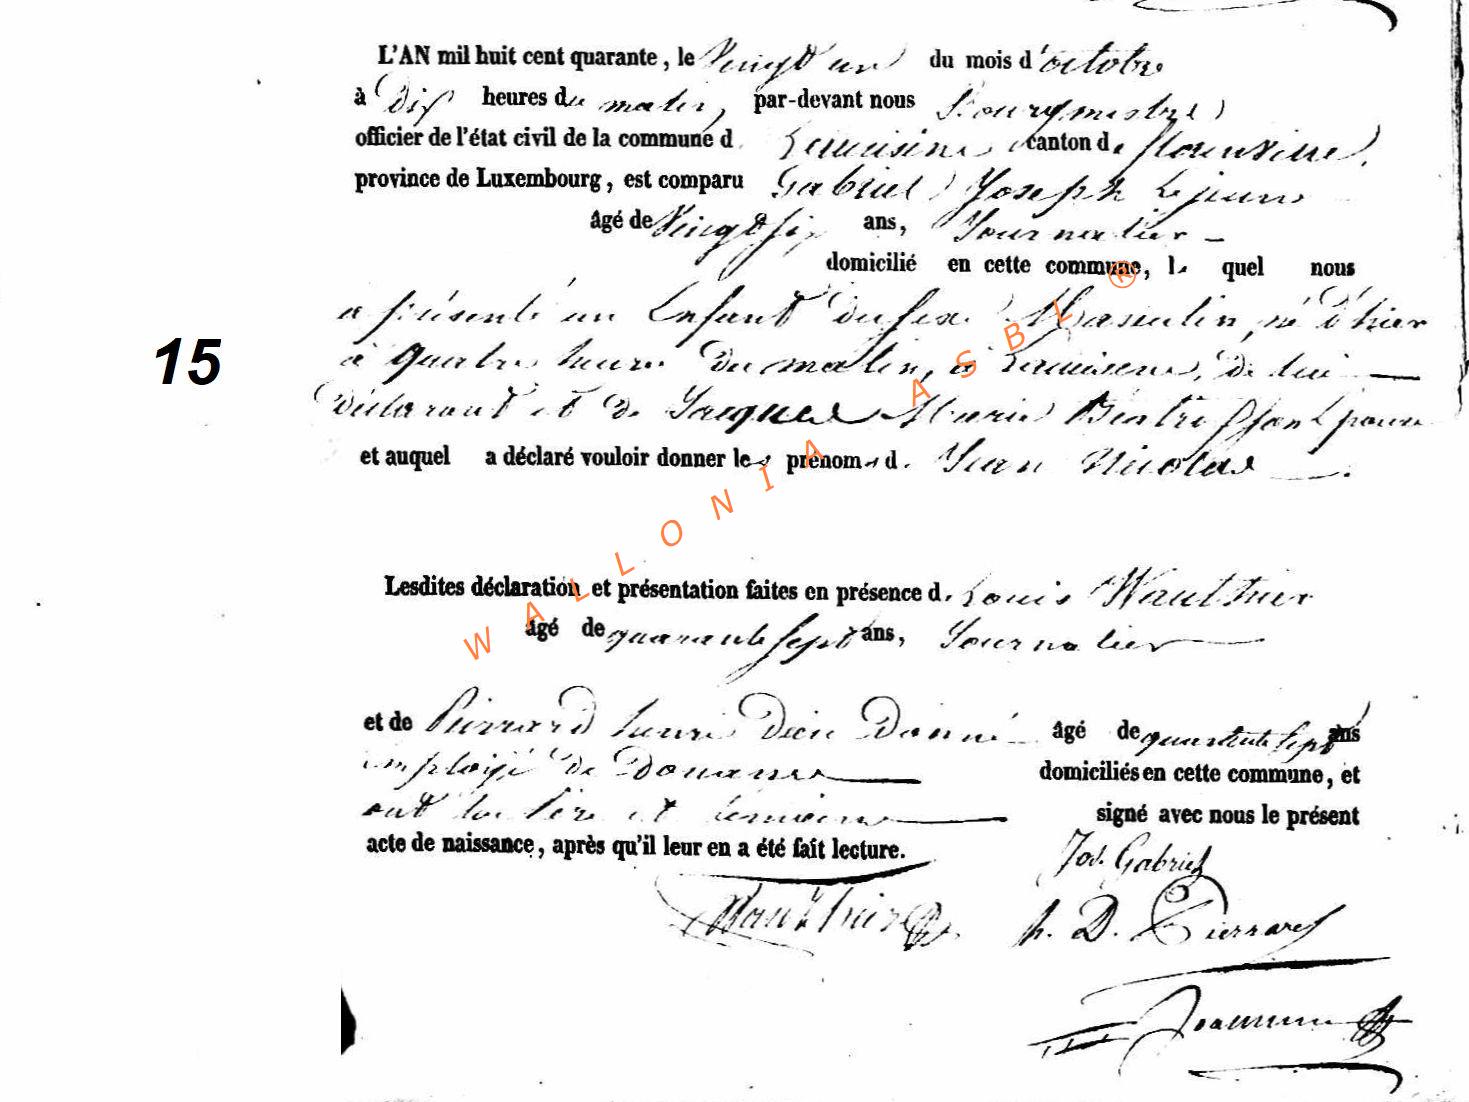 L'AN mil huit cent quarante, le Vingt un du mois d'octobre
à Dix heures du matin, par-devant nous Bourgmestre
officier de l'état civil de la commune d Lacuisine canton de florenville,
province de Luxembourg, est comparu Gabriel Joseph Lejeune
âgé de Vingt six ans, Journalier
domicilié en cette commune, le quel nous
a présenté un Enfant du sexe Masculin, né d'hier
15
à quatre heures du matin, à Lacuisine, de lui
déclarant et de Jacques Marie son Epouse
et auquel a déclaré vouloir donner les prénoms d. Jean Nicolas
Lesdites déclaration et présentation faites en présence d. Louis Wauthier
âgé de quarante sept ans, Journalier
et de Pierrard henri Dieu Donné âgé de quarante sept ans
employé de Douanes domiciliés en cette commune, et
ont le père et témoins signé avec nous le présent
acte de naissance, après qu'il leur en a été fait lecture.
Jos. Gabriel
Wauthier h. D. Pierrard
WALLONIA ASBL ®